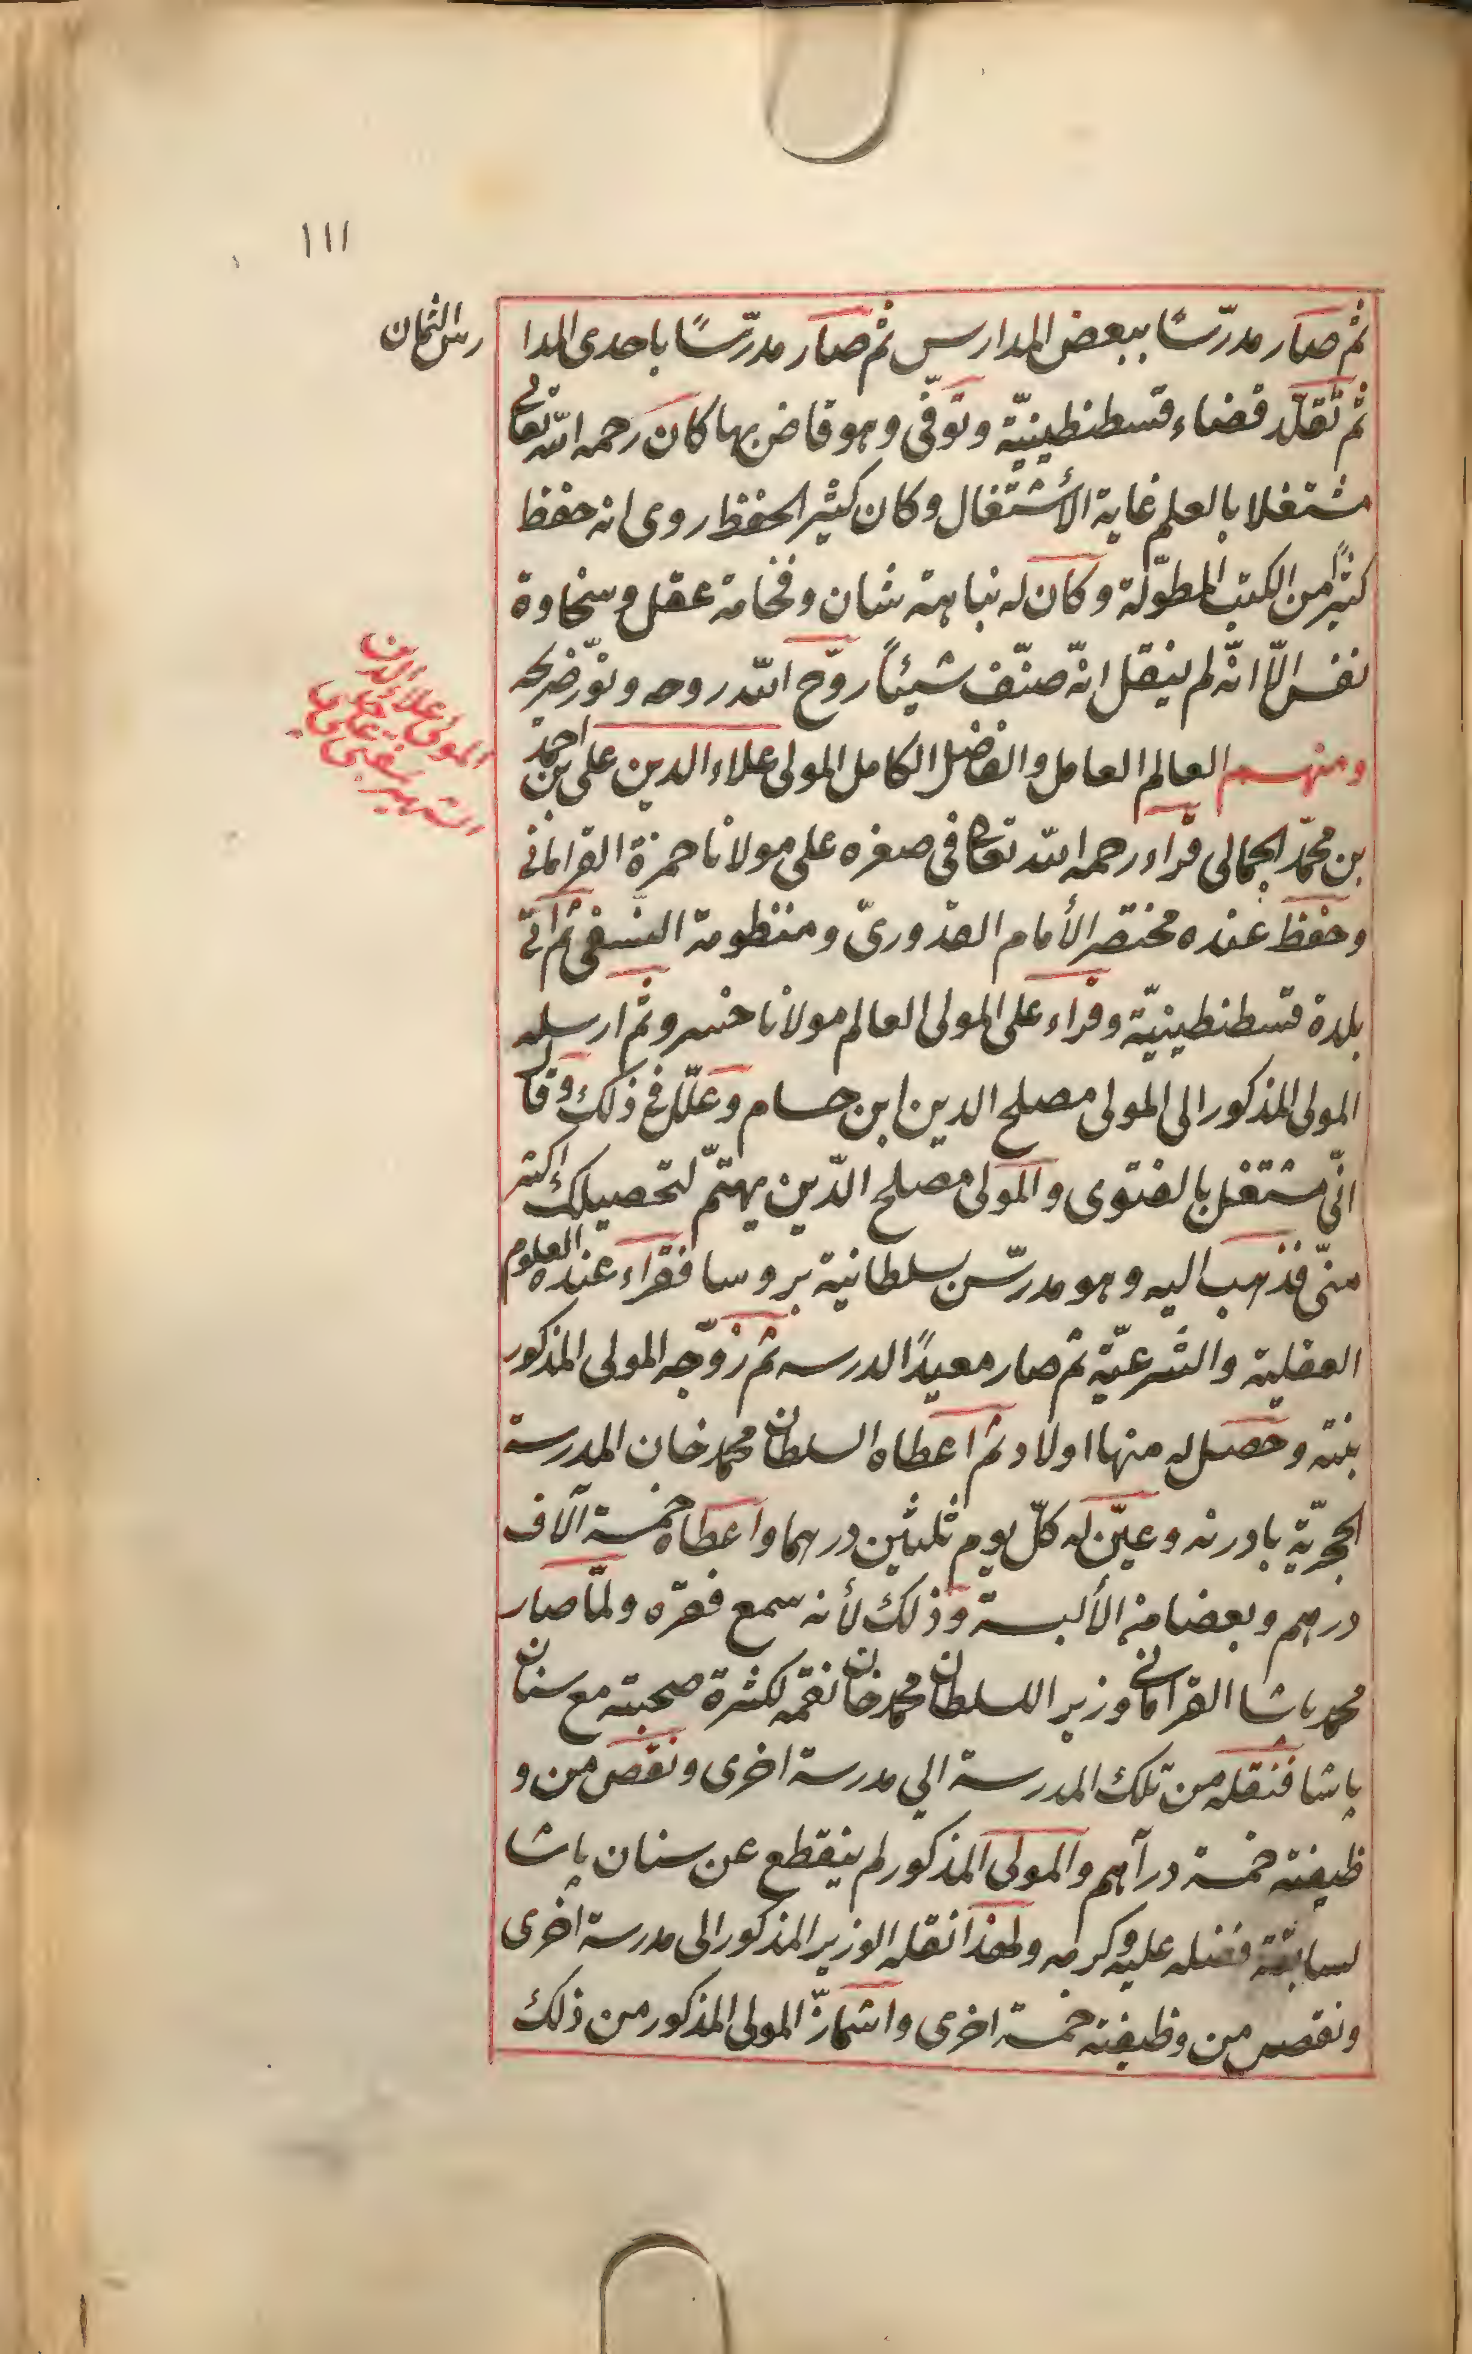 ١١١
ثم صار مدرّسًا ببعض المدارس ثم صار مدرّسًا باحدى المدا
رس الثمان
ثم تقلّد قضاء قسطنطينيّة وتوفّى وهو قاض بها كان رحمه الله تعالى
مشتغلا بالعلم غاية الأشتغال وكان كثير الحفظ روى انه حفظ
كثيرًا من الكتب المطوّلة وكان له نباهة شان وفخامة عقل وسخاوة
نفس الّا انّه لم ينقل انّه صنّف شيئاً روّح الله روحه ونوّر ضريحه
ومنهم العالم العامل والفاضل الكامل المولى علاء الدين على بن احمد
المولى علاء الدين
على
الشهير
بن محمّد الجمالى قراء رحمه الله تعالى فى صغره على مولانا حمزة القرامانى
وحفظ عنده مختصر الأمام القدورىّ ومنظومة النسفى ثم اتى
بلدة قسطنطينيّة وقراء على المولى العالم مولانا خسرو ثم ارسله
المولى المذكور الى المولى مصلح الدين ابن حسام وعلّل فى ذلك وقال
انّى مشتغل بالفتوى والمولى مصلح الدّين يهتمّ لتحصيلك اكثر
منّى فذهب اليه وهو مدرّس بسلطانية بروسا فقراء عنده العلوم
العقلية والشرعيّة ثم صار معيدًا لدرسه ثم زوّجه المولى المذكور
بنته وحصل له منها اولاد ثم اعطاه السلطان محمد خان المدرسة
الحجريّة بادرنه وعيّن له كلّ يوم ثلثين درهما واعطاه خمسة آلاف
درهم وبعضا من الألبسة وذلك لأنه سمع فقره ولمّا صار
محمد پاشا القرامانى وزير اللسلطان محمد خان نقمه لكثرة صحبته مع سنان
پاشا فنقله من تلك المدرسة الى مدرسة اخرى ونقص من و
ظيفته خمسة درآهم والمولى المذكور لم ينقطع عن سنان پاشا
لسابقة فضله عليه وكرمه ولهذا نقله الوزير المذكور الى مدرسة اخرى
ونقص من وظيفته خمسة اخرى واشمأزّ المولى المذكور من ذلك